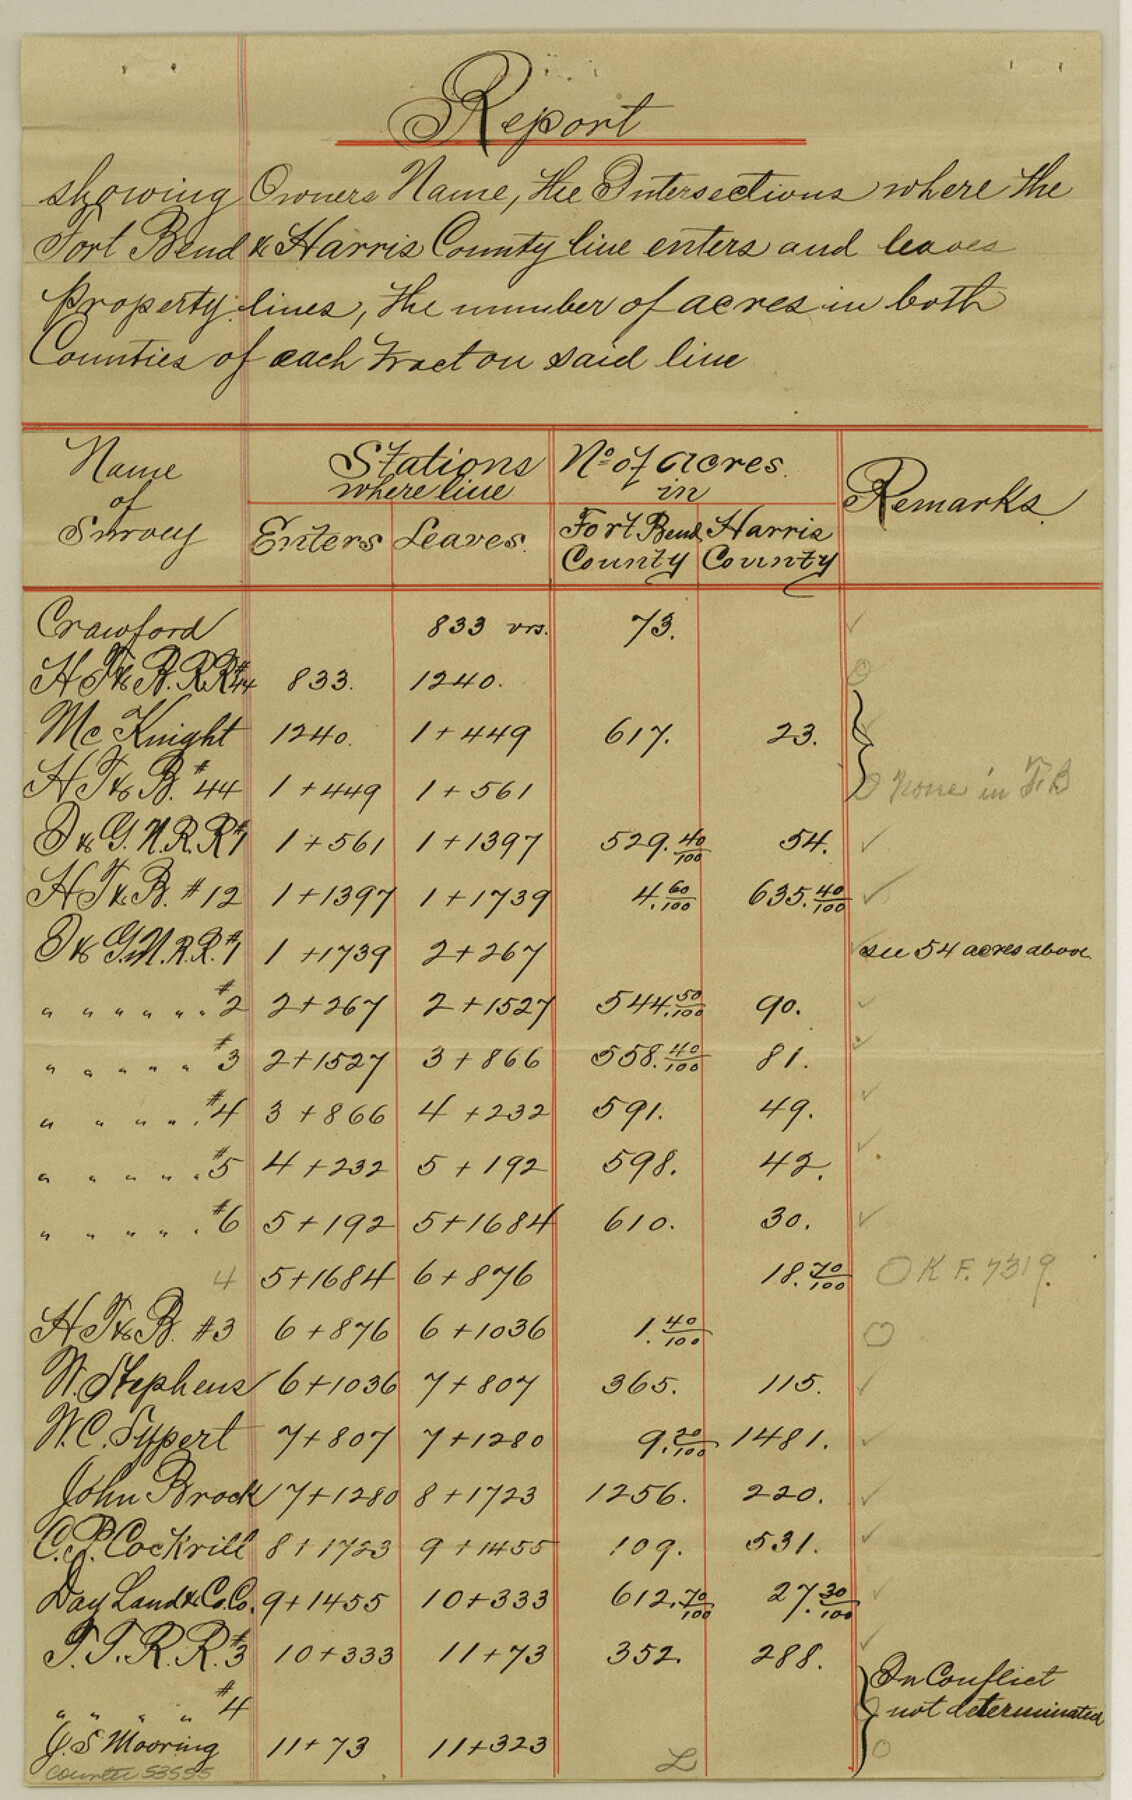 Report
showing Owners Name, the Intersections where the
Fort Bend & Harris County line enters and leaves
Property lines, the number of acres in both
Counties of each tract on said line
Name of Survey | Stations where line | No of acres in | Remarks.
Enters | Leaves. | Fort Bend County | Harris County
Crawford 833 vrs. 73. ✓
H T & B. R.R #44 833. 1240. O
Mc Knight 1240. 1+449 617. 23. ✓
H T & B. #44 1+449 1+561 O none in Ft. B
I & G. N. R. R #1 1+561 1+1397 529.40/100 54. ✓
H T & B. #12 1+1397 1+1739 4.60/100 635.40/100 ✓
I & G. N. R. R. #1 1+1739 2+267 see 54 acres above.
" " " " " " #2 2+267 2+1527 544.50/100 90. ✓
" " " " " #3 2+1527 3+866 558.40/100 81. ✓
" " " " " #4 3+866 4+232 591. 49. ✓
" " " " " #5 4+232 5+192 598. 42. ✓
" " " " " #6 5+192 5+1684 610. 30. ✓
4 5+1684 6+876 18.70/100 OK F. 7319.
H T & B. #3 6+876 6+1036 1.40/100 O
W. Stephens 6+1036 7+807 365. 115. ✓
W. C. Sypert 7+807 7+1280 9.20/100 1481. ✓
John Brock 7+1280 8+1723 1256. 220. ✓
C. P. Cockrill 8+1723 9+1455 109. 531. ✓
Day Land & C. Co. 9+1455 10+333 612.70/100 27.30/100 ✓
T. T. R. R. #3 10+333 11+73 352. 288. ✓
" " " " #4 In Conflict not determined
J. S Mooring 11+73 11+323 O
counter 53555